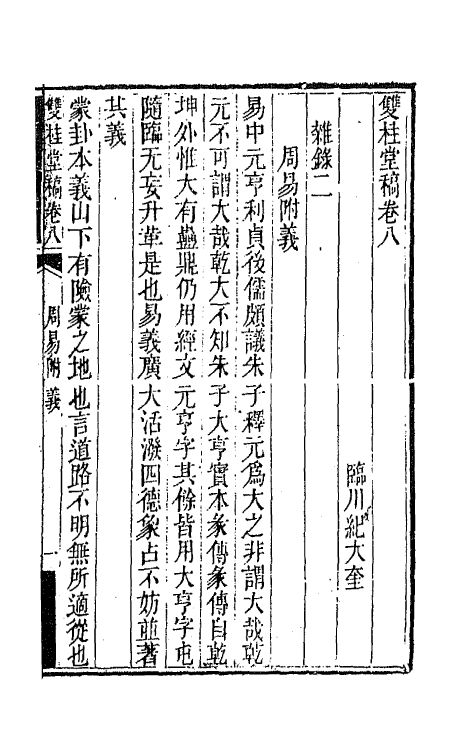 雙桂堂稿卷八
臨川紀大奎
雜錄二
周易附義
易中元亨利貞後儒頗議朱子釋元爲大之非謂大哉乾
元不可謂大哉乾大不知朱子大亨實本彖傳彖傳自乾
坤外惟大有蠱鼎仍用經文元亨字其餘皆用大亨字屯
隨臨无妄升革是也易義廣大活潑四德象占不妨並著
其義
蒙卦本義山下有險蒙之地也言道路不明無所適從也
雙桂堂稿卷八
周易附義
一